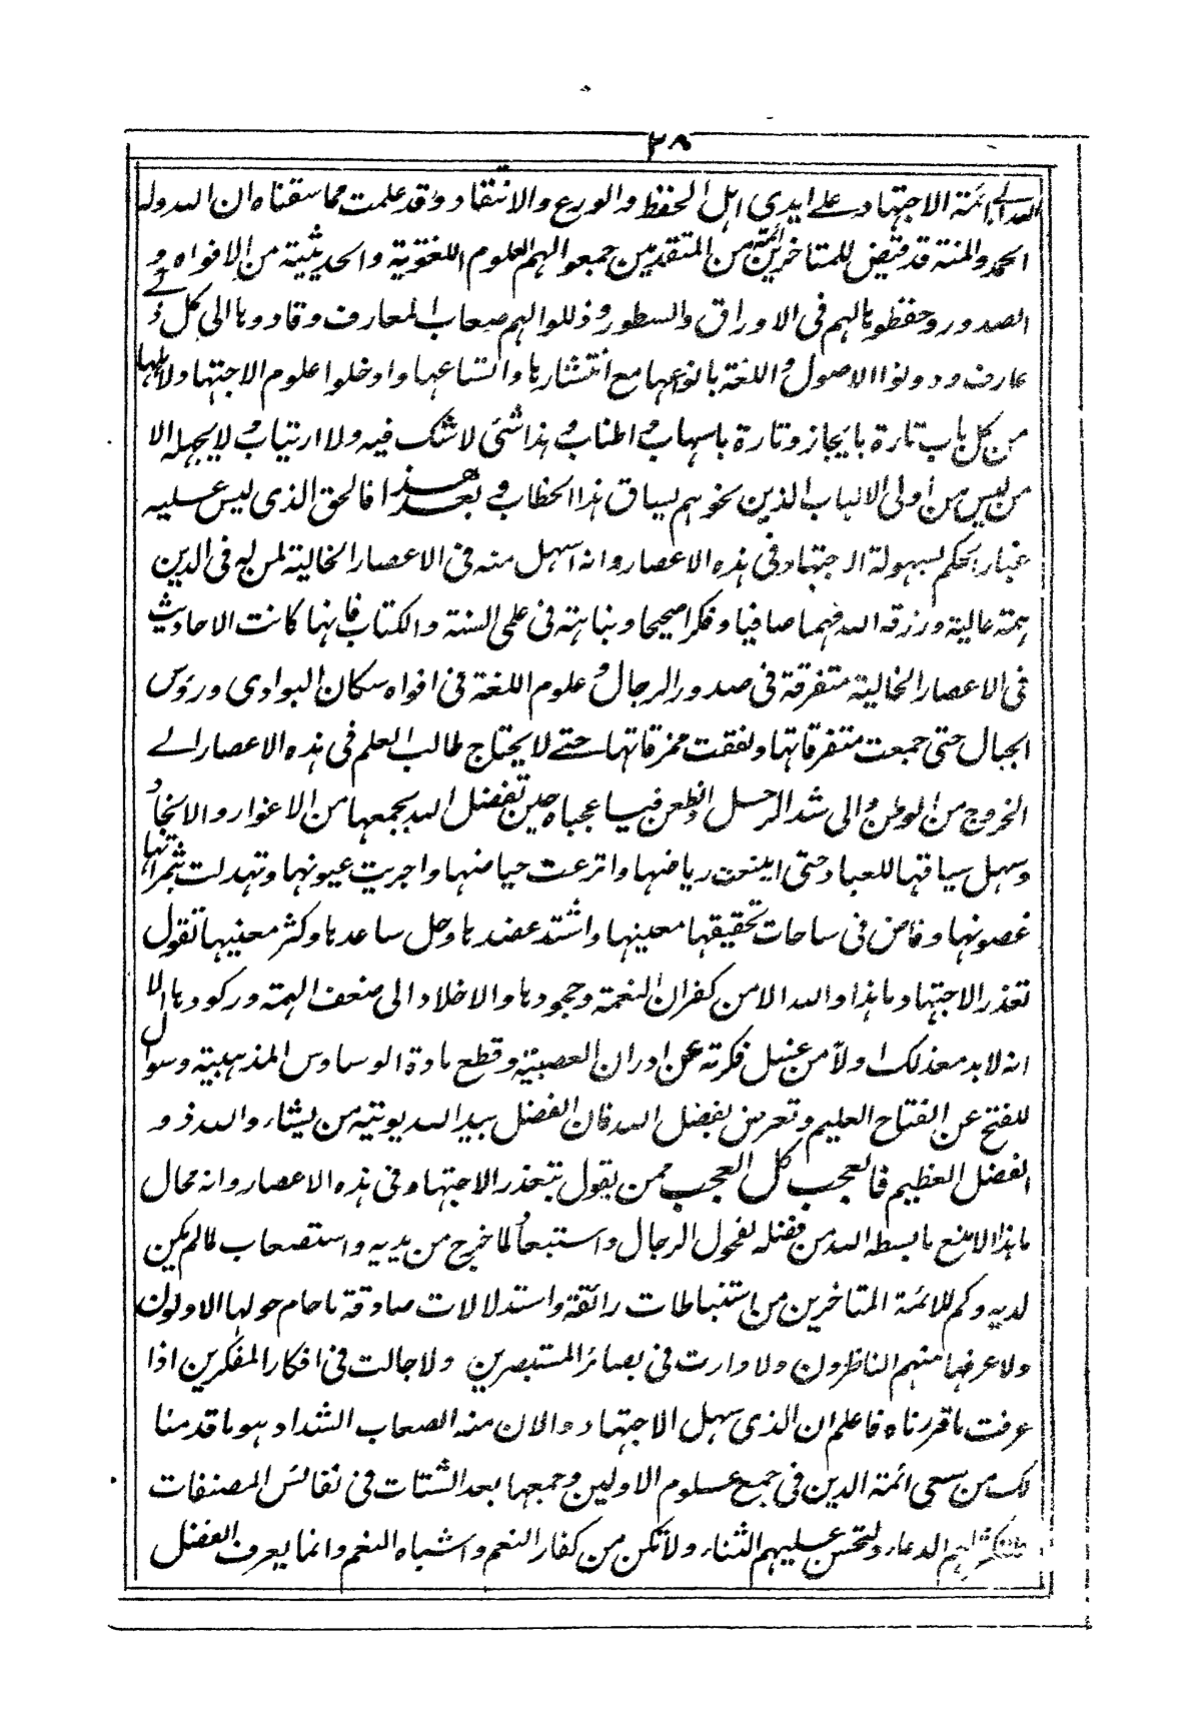 ٢٨
الله الى ائمة الاجتهاد على ايدى اهل الحفظ والورع والانتقاد وقد علمت مما سقناه ان الله وله
الحمد والمنة قد قيض للمتاخرين ائمة من المتقدمين جمعوا لهم العلوم اللغوية والحديثية من الافواه و
الصدور وحفظوها لهم فى الاوراق والسطور وذللوا لهم صعاب المعارف وقادوها الى كل ذى
عارف ودونوا الاصول واللغة بانواعها مع انتشارها واتساعها وادخلوا علوم الاجتهاد لاهلها
من كل باب تارة بايجاز وتارة باسهاب واطناب هذا شئ لا شك فيه ولا ارتياب لا يجهله الا
من ليس من اولى الالباب الذين نحوهم يساق هذا الخطاب وبعد هذا فالحق الذى ليس عليه
غبار الحكم بسهولة الاجتهاد فى هذه الاعصار وانه اسهل منه فى الاعصار الخالية لمن له فى الدين
همة عالية ورزقه الله فهما صافيا وفكرا صحيحا ونباهة فى علمى السنة والكتاب فانها كانت الاحاديث
فى الاعصار الخالية متفرقة فى صدور الرجال وعلوم اللغة فى افواه سكان البوادى ورؤس
الجبال حتى جمعت متفرقاتها ولفقت ممزقاتها حتى لا يحتاج طالب العلم فى هذه الاعصار الى
الخروج من الوطن والى شد الرحل والظعن فيا عجباه حين تفضل الله بجمعها من الاغوار والانجاد
وسهل سياقتها للعباد حتى اينعت رياضها واترعت حياضها واجريت عيونها وتهدلت بثمراتها
غصونها وفاض فى ساحات تحقيقها معينها واشتد عضدها وجل ساعدها وكثر معينها تقول
تعذر الاجتهاد ما هذا والله الا من كفران النعمة وجحودها والاخلاد الى ضعف الهمة وركودها الا
انه لا بد مع ذلك اولا من غسل فكرته عن ادران العصبية وقطع مادة الوساوس المذهبية وسوال
للفتح عن الفتاح العليم وتعرض لفضل الله فان الفضل بيد الله يوتيه من يشاء والله ذو
الفضل العظيم فالعجب كل العجب ممن يقول بتعذر الاجتهاد فى هذه الاعصار وانه محال
ما هذا الا منع ما بسطه الله من فضله لفحول الرجال واستبعاد لما خرج من يديه واستصعاب لما لم يكن
لديه وكم للائمة المتاخرين من استنباطات رائقة واستدلالات صادقة ما حام حولها الاولون
ولا عرفها منهم الناظرون ولا دارت فى بصائر المستبصرين ولا جالت فى افكار المفكرين اذا
عرفت ما قررناه فاعلم ان الذى سهل الاجتهاد والان منه الصعاب الشداد هو ما قدمنا
لك من سعى ائمة الدين فى جمع علوم الاولين وجمعها بعد الشتات فى نفائس المصنفات
فلتكثر لهم الدعاء ولتحسن عليهم الثناء ولا تكن من كفار النعم واشباه النعم وانما يعرف الفضل